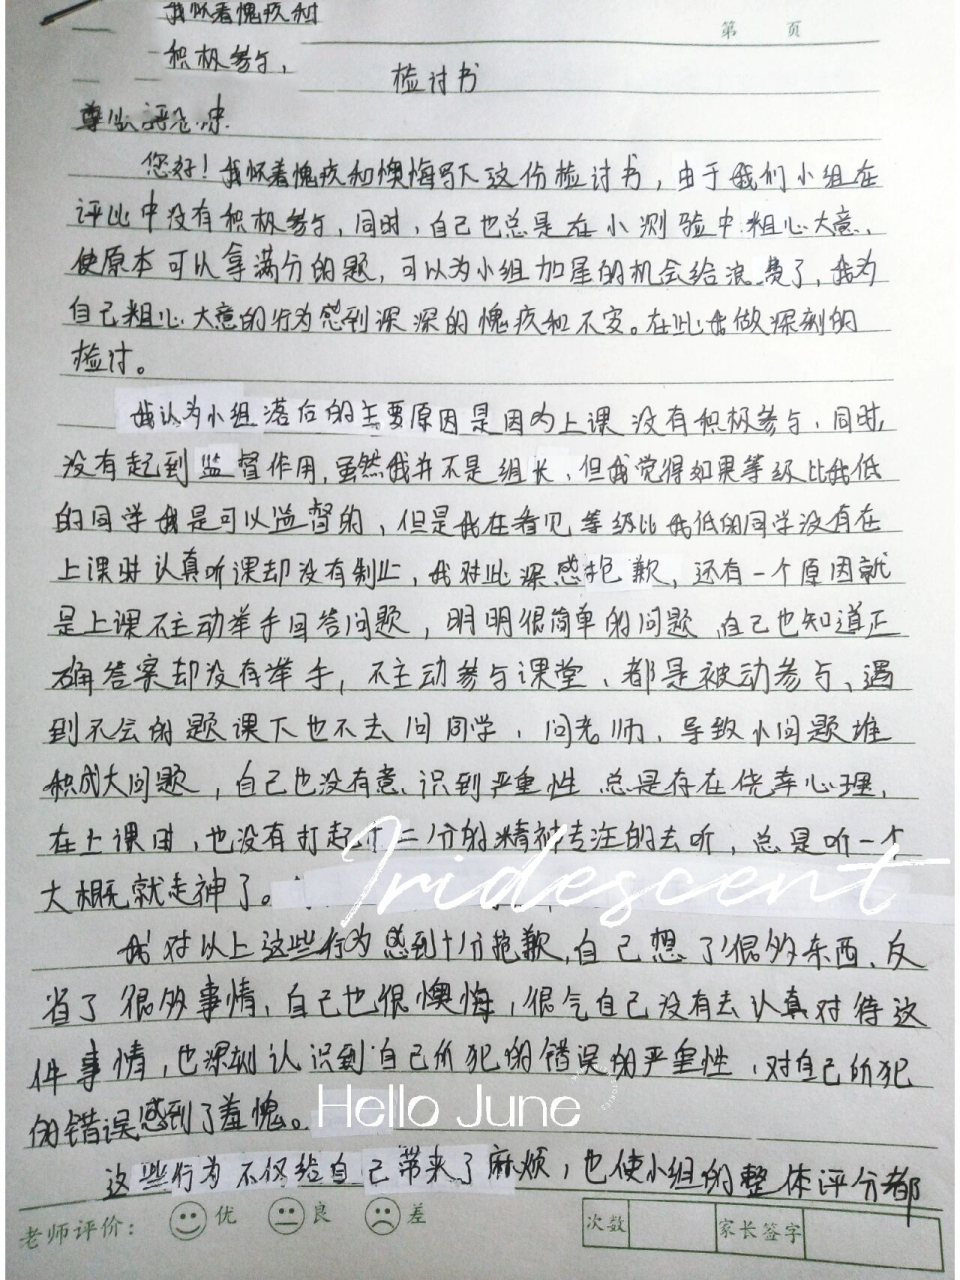 我怀着愧疚和
第 页
积极参与，
检讨书
尊
您好！我怀着愧疚和懊悔写下这份检讨书，由于我们小组在
评比中没有积极参与，同时，自己也总是在小测验中粗心大意、
使原本可以拿满分的题，可以为小组加星的机会给浪费了，我为
自己粗心大意的行为感到深深的愧疚和不安。在此我做深刻的
检讨。
我认为小组落后的主要原因是因为上课没有积极参与，同时，
没有起到监督作用，虽然我并不是组长、但我觉得如果等级比我低
的同学我是可以监督的，但是我在看见等级比我低的同学没有在
上课时认真听课却没有制止，我对此深感抱歉，还有一个原因就
是上课不主动举手回答问题，明明很简单的问题，自己也知道正
确答案却没有举手，不主动参与课堂、都是被动参与、遇
到不会的题课下也不去问同学、问老师、导致小问题堆
积成大问题，自己也没有意识到严重性，总是存在侥幸心理，
在上课时，也没有打起十二分的精神专注的去听，总是听一个
大概就走神了。
Iridescent
我对以上这些行为感到十分抱歉，自己想了很多东西、反
省了很多事情，自己也很懊悔，很气自己没有去认真对待这
件事情，也深刻认识到自己所犯的错误的严重性，对自己所犯
的错误感到了羞愧。
Hello June
这些行为不仅给自己带来了麻烦，也使小组的整体评分都
老师评价： 优 良 差 次数 家长签字